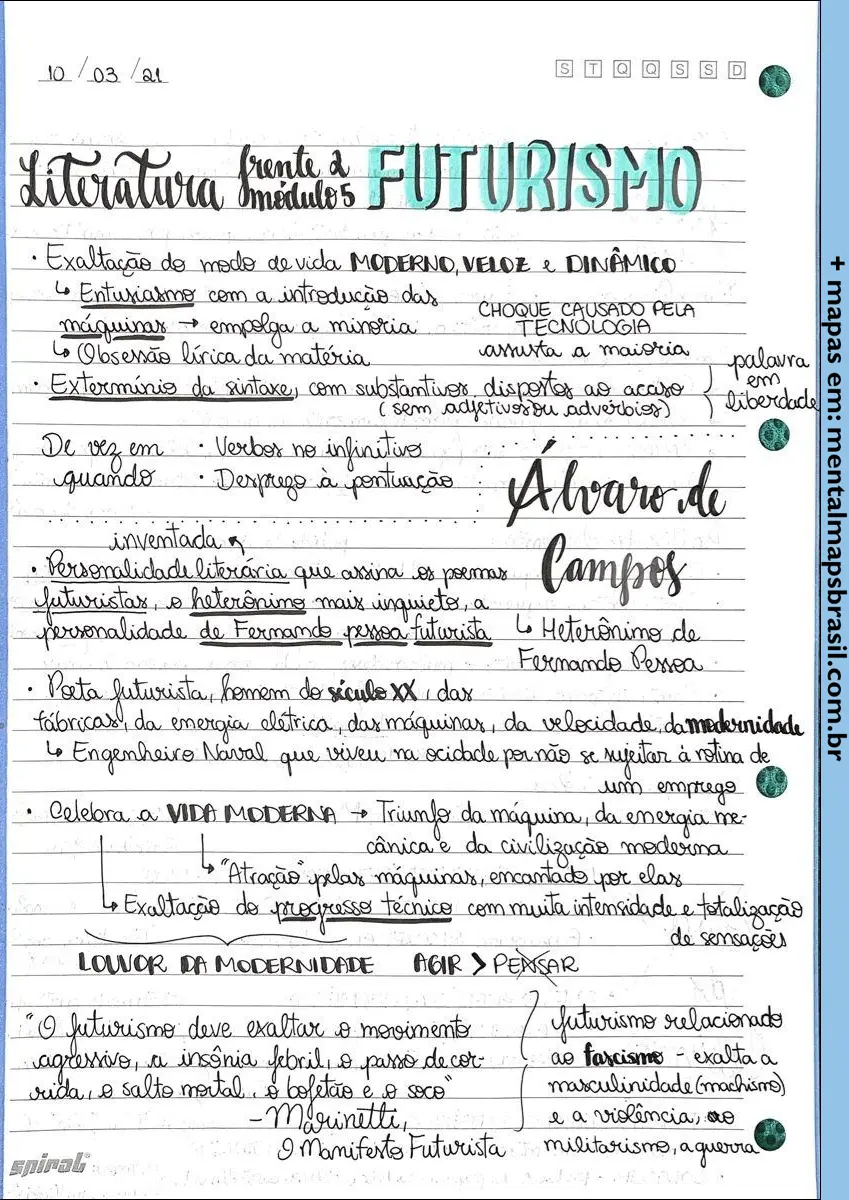 10 / 03 / 21
S T Q Q S S D
Literatura frente 2 módulo 5 FUTURISMO
· Exaltação do modo de vida MODERNO, VELOZ e DINÂMICO
↳ Entusiasmo com a introdução das
máquinas → empolga a minoria
CHOQUE CAUSADO PELA
TECNOLOGIA
assusta a maioria
↳ Obsessão lírica da matéria
· Extermínio da sintaxe, com substantivos dispostos ao acaso
(sem adjetivos ou advérbios)
palavra
em
liberdade
De vez em
quando
· Verbos no infinitivo
· Desprezo à pontuação
Álvaro de
Campos
↳ Heterônimo de
Fernando Pessoa
inventada
· Personalidade literária que assina os poemas
futuristas, o heterônimo mais inquieto, a
personalidade de Fernando pessoa futurista
· Poeta futurista, homem do século XX, das
fábricas, da energia elétrica, das máquinas, da velocidade, da modernidade
↳ Engenheiro Naval que viveu na ocidade por não se sujeitar à rotina de
um emprego
· Celebra a VIDA MODERNA → Triunfo da máquina, da energia me-
cânica e da civilização moderna
↳ "Atração" pelas máquinas, encantado por elas
↳ Exaltação do progresso técnico com muita intensidade e totalização
de sensações
LOUVOR DA MODERNIDADE AGIR > PENSAR
"O futurismo deve exaltar o movimento
agressivo, a insônia febril, o passo de cor-
rida, o salto mortal, o bofetão e o soco"
- Marinetti,
O Manifesto Futurista
futurismo relacionado
ao fascismo - exalta a
masculinidade (machismo)
e a violência, ao
militarismo, a guerra
spiral
+ mapas em: mentalmapsbrasil.com.br